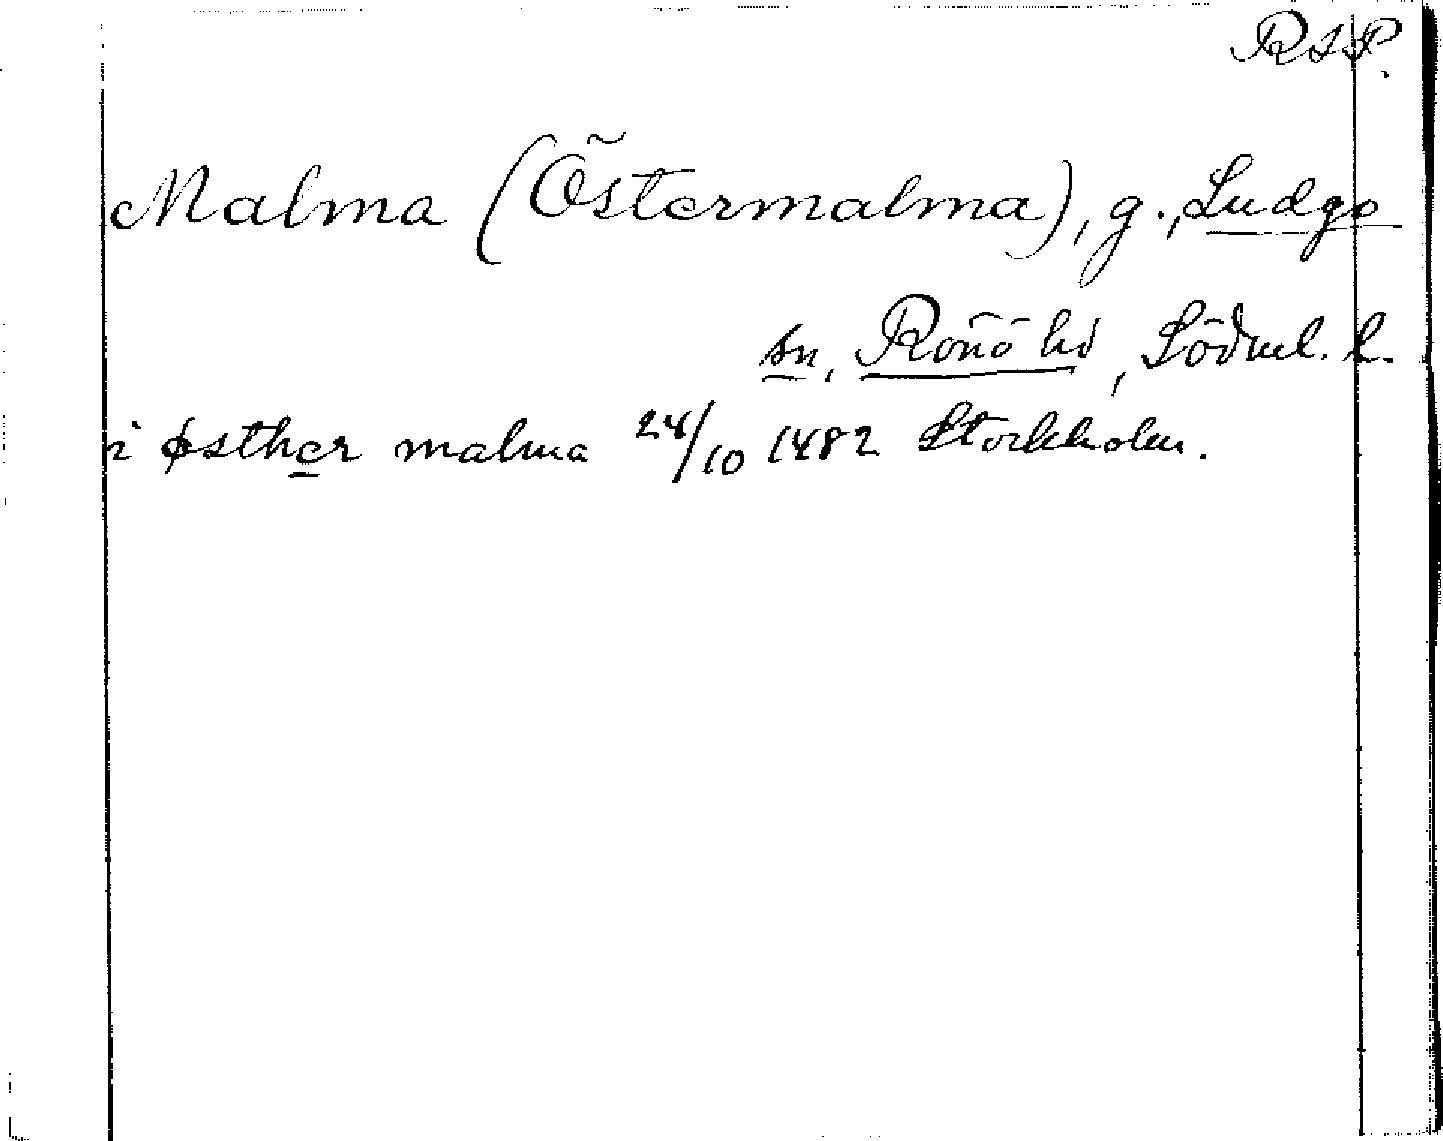 RSP.
Malma (Östermalma), g., Ludgo
sn, Rönö hd, Södml. l.
i østher malma 24/10 1482 Stockholm.